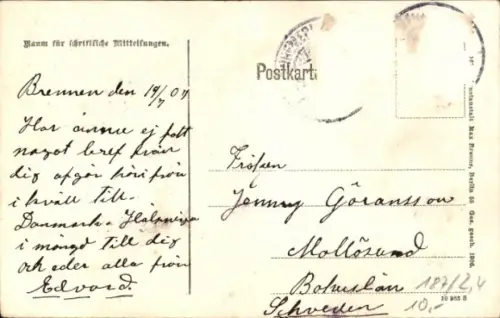 Raum für schriftliche Mitteilungen.
Postkart
Bremen den 19/7 07
Har ännu ej fått
något bref från
dig afgår härifrån
i kväll till
Danmark. Hälsningar
i mängd till dig
och eder alla från
Edvard.
Fröken
Jenny Göransson
Mollösund
Bohuslän
Schweden
187/2,4
10,-
10 985 B
Kunstanstalt Max Breslauer, Berlin 56 Ges. gesch. 1906.